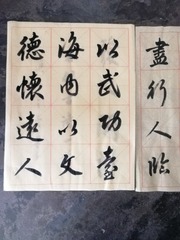 盡行人臨
以武功壹
海內以文
德懷遠人